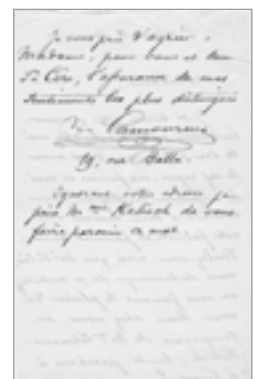 Je vous prie d'agréer,
Madame, pour vous et
l'assurance de mes
sentiments les plus distingués
19, rue
Ignorant votre adresse je
prie Mme de vous
faire parvenir ce mot.